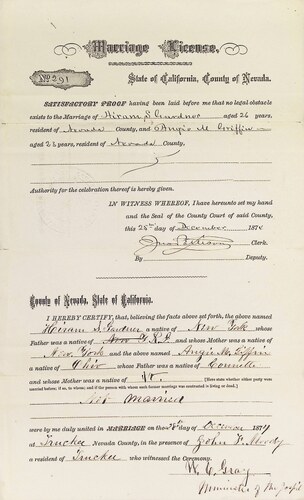 Marriage License,
No 291
State of California, County of Nevada.
SATISFACTORY PROOF having been laid before me that no legal obstacle
exists to the Marriage of Hiram S aged 26 years,
resident of Nevada County, and Angie M Griffin
aged 2 years, resident of Nevada County,
Authority for the celebration thereof is hereby given.
IN WITNESS WHEREOF, I have hereunto set my hand
and the Seal of the County Court of said County,
this 25th day of December 187
Clerk.
By Deputy.
County of Nevada, State of California.
I HEREBY CERTIFY, that, believing the facts above set forth, the above named
Hiram S. Gardner a native of New York whose
Father was a native of and whose Mother was a native of
New York and the above named Angie M.
a native of Ohio whose Father was a native of
and whose Mother was a native of Vt. [Here state whether either party
married before; if so, to whom; and if the person with whom such former marriage was contracted is living or dead.]
Not married
were by me duly united in MARRIAGE on the day of 187
at Truckee Nevada County, in the presence of John F. Moody
a resident of Truckee who witnessed the Ceremony.
Gray
Minister of the Gospel